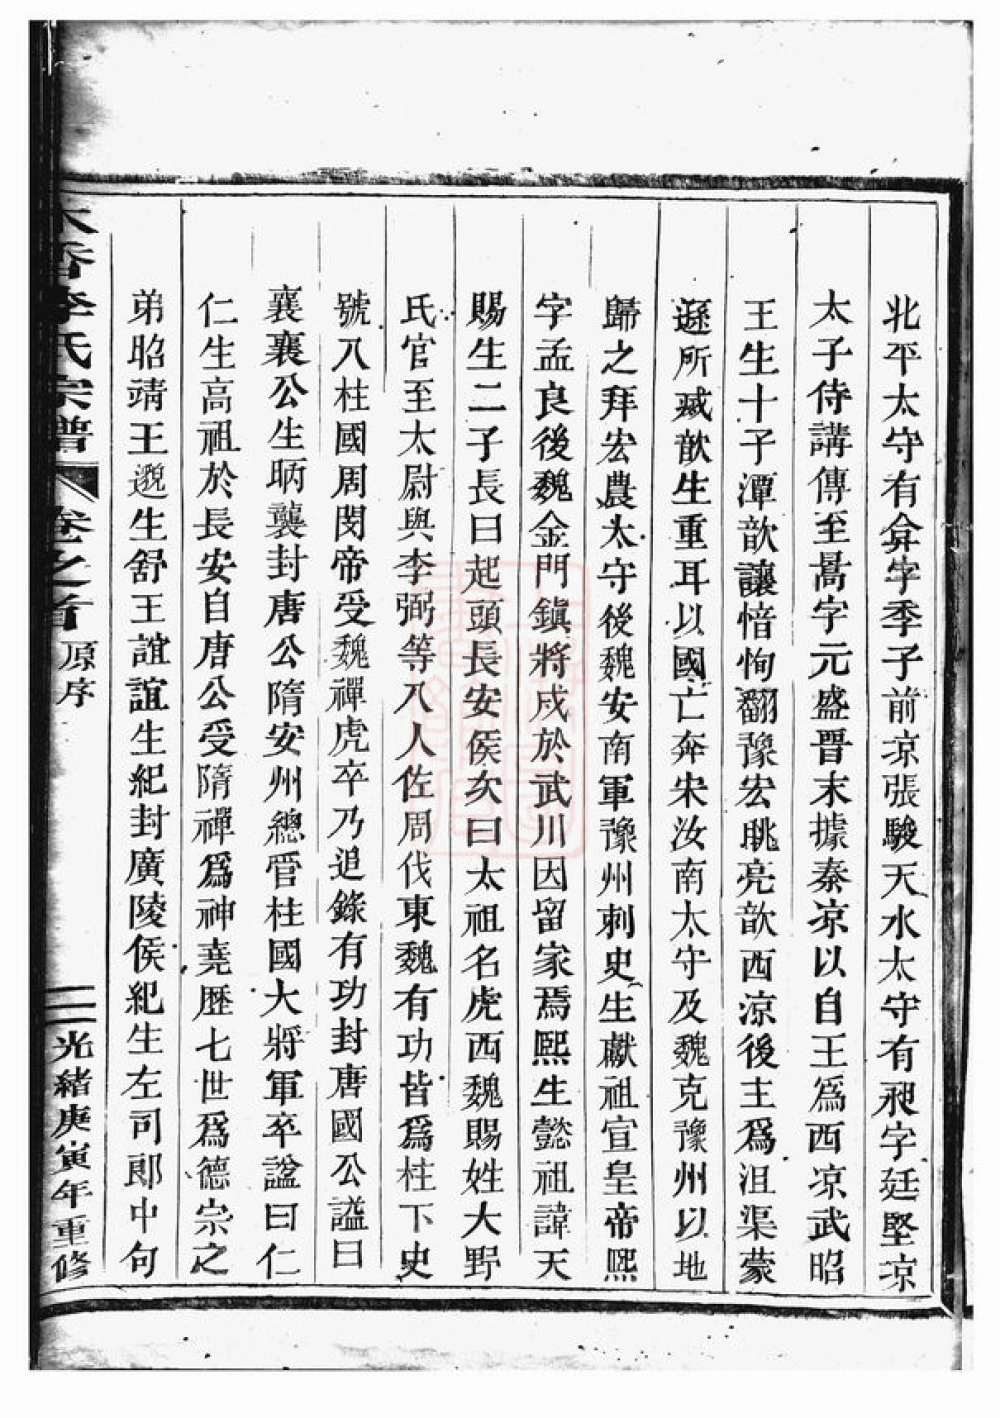 北平太守有弇字季子前凉張駿天水太守有昶字廷堅凉
太子侍講傳至暠字元盛晋末據秦凉以自王爲西凉武昭
王生十子潭歆讓愔恂翻豫宏眺亮歆西凉後主爲沮渠蒙
遜所滅歆生重耳以國亡奔宋汝南太守及魏克豫州以地
歸之拜宏農太守後魏安南軍豫州刺史生獻祖宣皇帝熙
字孟良後魏金門鎮將戍於武川因留家焉熙生懿祖諱天
賜生二子長曰起頭長安侯次曰太祖名虎西魏賜姓大野
氏官至太尉與李弼等八人佐周伐東魏有功皆爲柱下史
號八柱國周閔帝受魏禪虎卒乃追錄有功封唐國公謚曰
襄襄公生昞襲封唐公隋安州總管柱國大將軍卒諡曰仁
仁生高祖於長安自唐公受隋禪爲神堯歷七世爲德宗之
弟昭靖王邈生舒王誼誼生紀封廣陵侯紀生左司郎中句
香李氏宗譜 卷之首 原序 二 光緒庚寅年重修